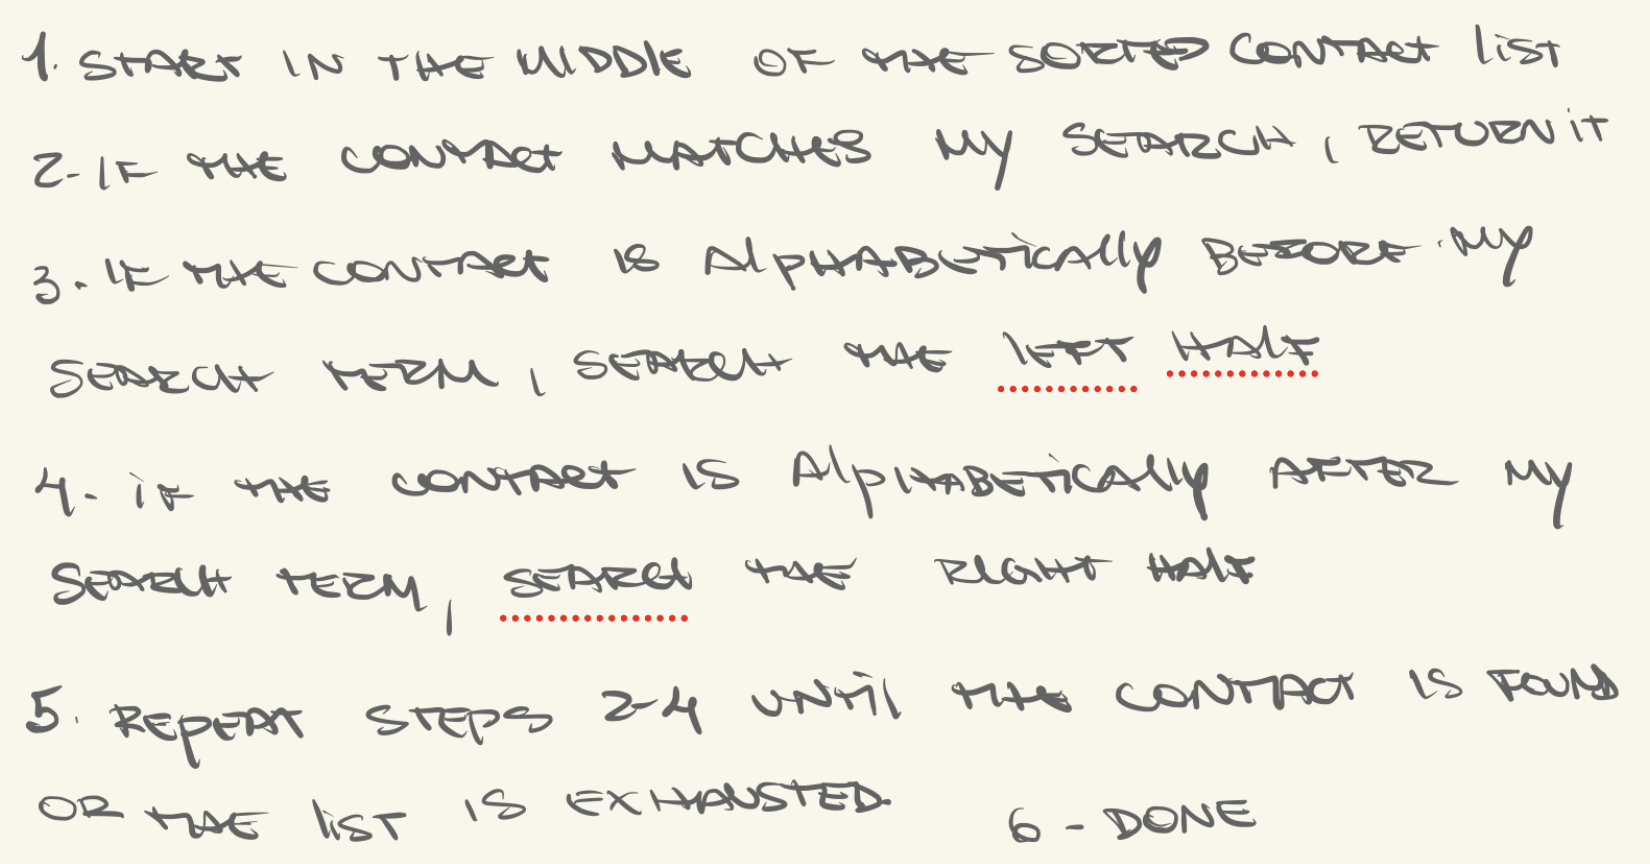 1. START IN THE MIDDLE OF THE SORTED CONTACT LIST
2- IF THE CONTACT MATCHES MY SEARCH, RETURN IT
3. IF THE CONTACT IS ALPHABETICALLY BEFORE MY
SEARCH TERM, SEARCH THE LEFT HALF
4. IF THE CONTACT IS ALPHABETICALLY AFTER MY
SEARCH TERM, SEARCH THE RIGHT HALF
5. REPEAT STEPS 2-4 UNTIL THE CONTACT IS FOUND
OR THE LIST IS EXHAUSTED. 6 - DONE